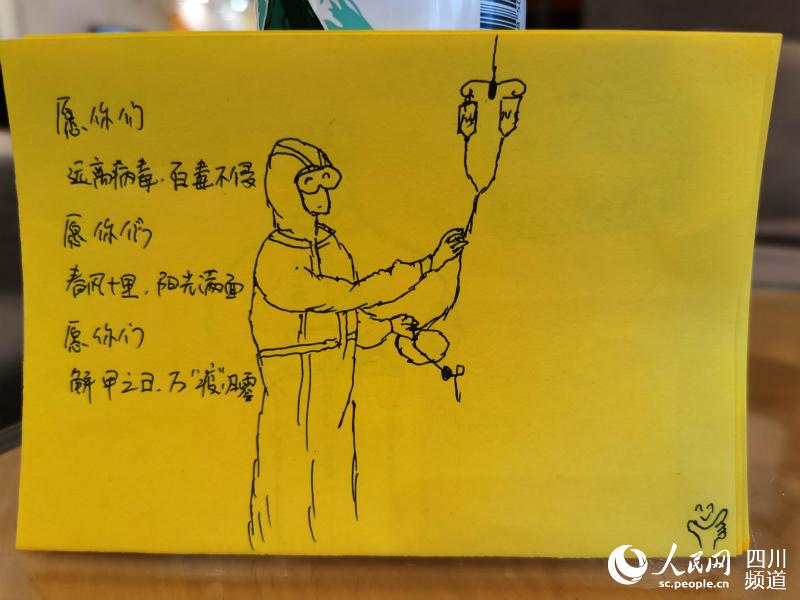 愿你们
远离病毒.百毒不侵
愿你们
春风十里.阳光满面
愿你们
解甲之日.万“疫”归零
人民网
sc.people.cn
四川
频道